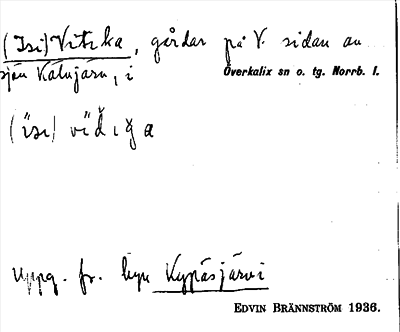 (Isi) Vitika, gårdar på V. sidan av
sjön Kalvjärv, i
Överkalix sn o. tg. Norrb. l.
(isi) vidiga
Uppg. fr. byn Kypäsjärvi
EDVIN BRÄNNSTRÖM 1936.